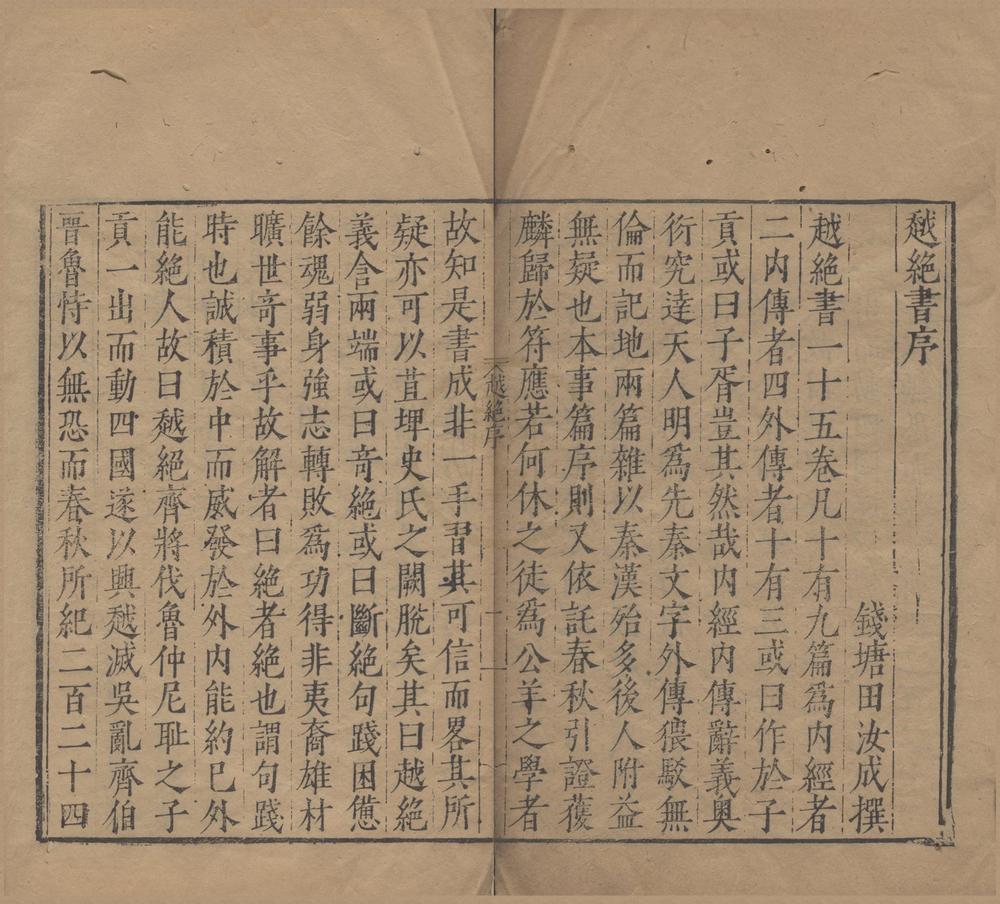 越絕書序
錢塘田汝成撰
越絕書一十五卷凡十有九篇爲內經者
二內傳者四外傳者十有三或曰作於子
貢或曰子胥豈其然哉內經內傳辭義奧
衍究逹天人明爲先秦文字外傳猥駁無
倫而記地兩篇雜以秦漢殆多後人附益
無疑也本事篇序則又依託春秋引證獲
麟歸於符應若何休之徒爲公羊之學者
越絕序
一
故知是書成非一手習其可信而畧其所
疑亦可以苴埤史氏之闕脫矣其曰越絕
義含兩端或曰奇絕或曰斷絕句踐困憊
餘魂弱身強志轉敗爲功得非夷裔雄材
曠世奇事乎故解者曰絕者絕也謂句踐
時也誠積於中而威發於外內能約巳外
能絕人故曰越絕齊將伐魯仲尼耻之子
貢一出而動四國遂以興越滅吳亂齊伯
晉魯恃以無恐而春秋所紀二百二十四